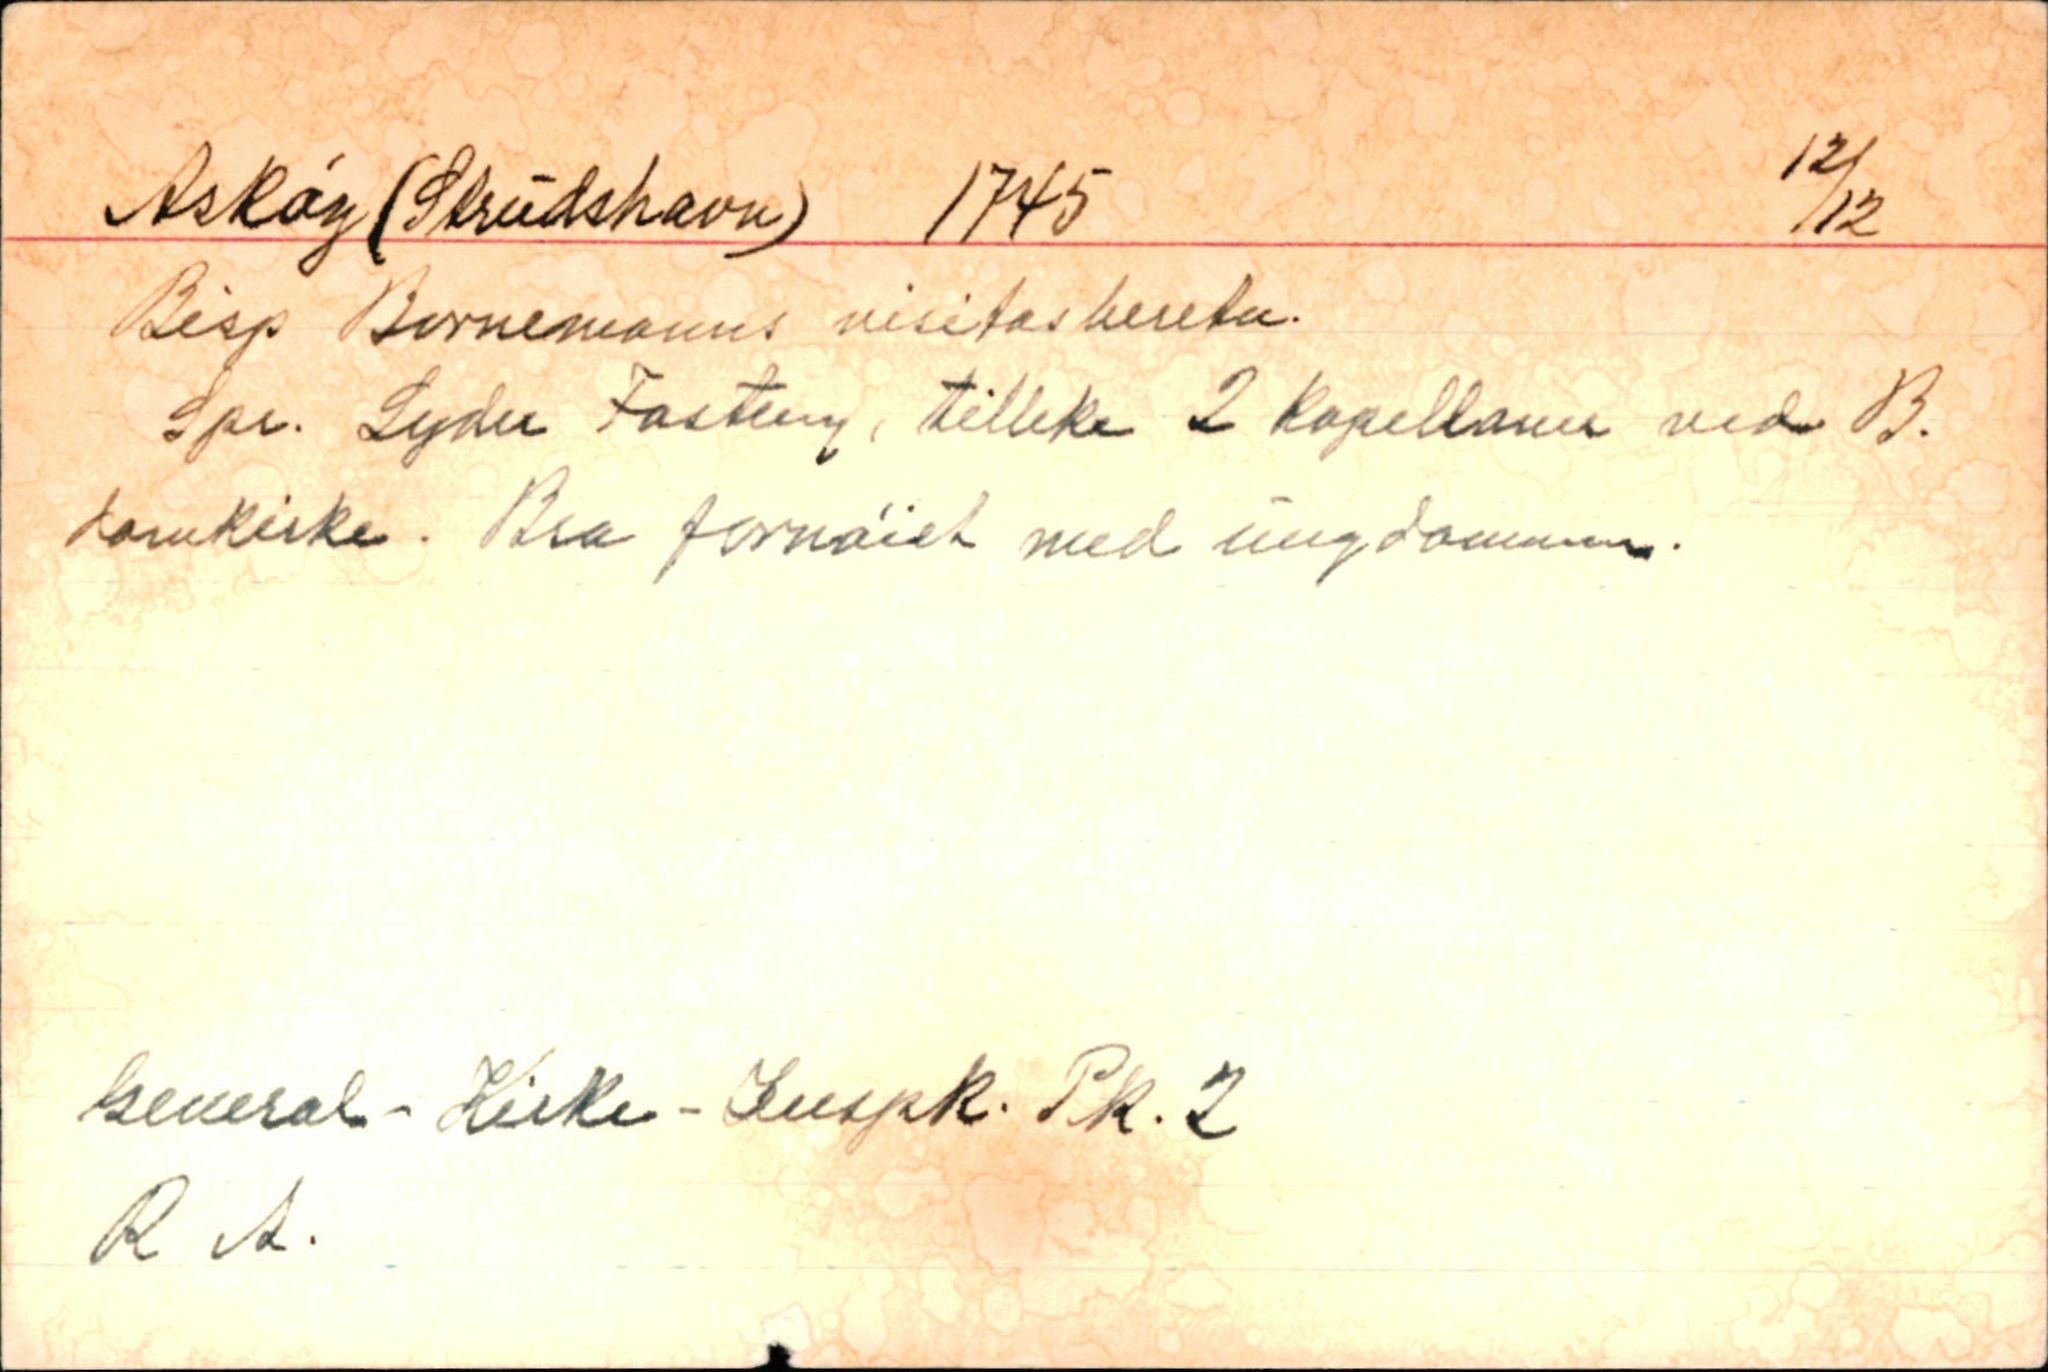 Askøy (Strudshavn) 1745 12/12
Bisp Bornemanns visitasberetn.
Spr. Lyder Fasting, tilleke 2 kapellaner ved B.
domkirke. Bra fornøiet med ungdommen.
General-Kirke-Inspk. Pk. 2
R A.